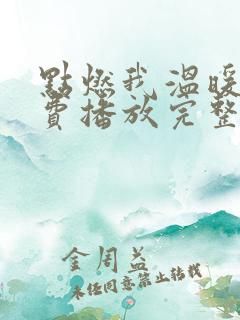 點燃我溫暖
費播放完整
金周益
未经同意禁止转载